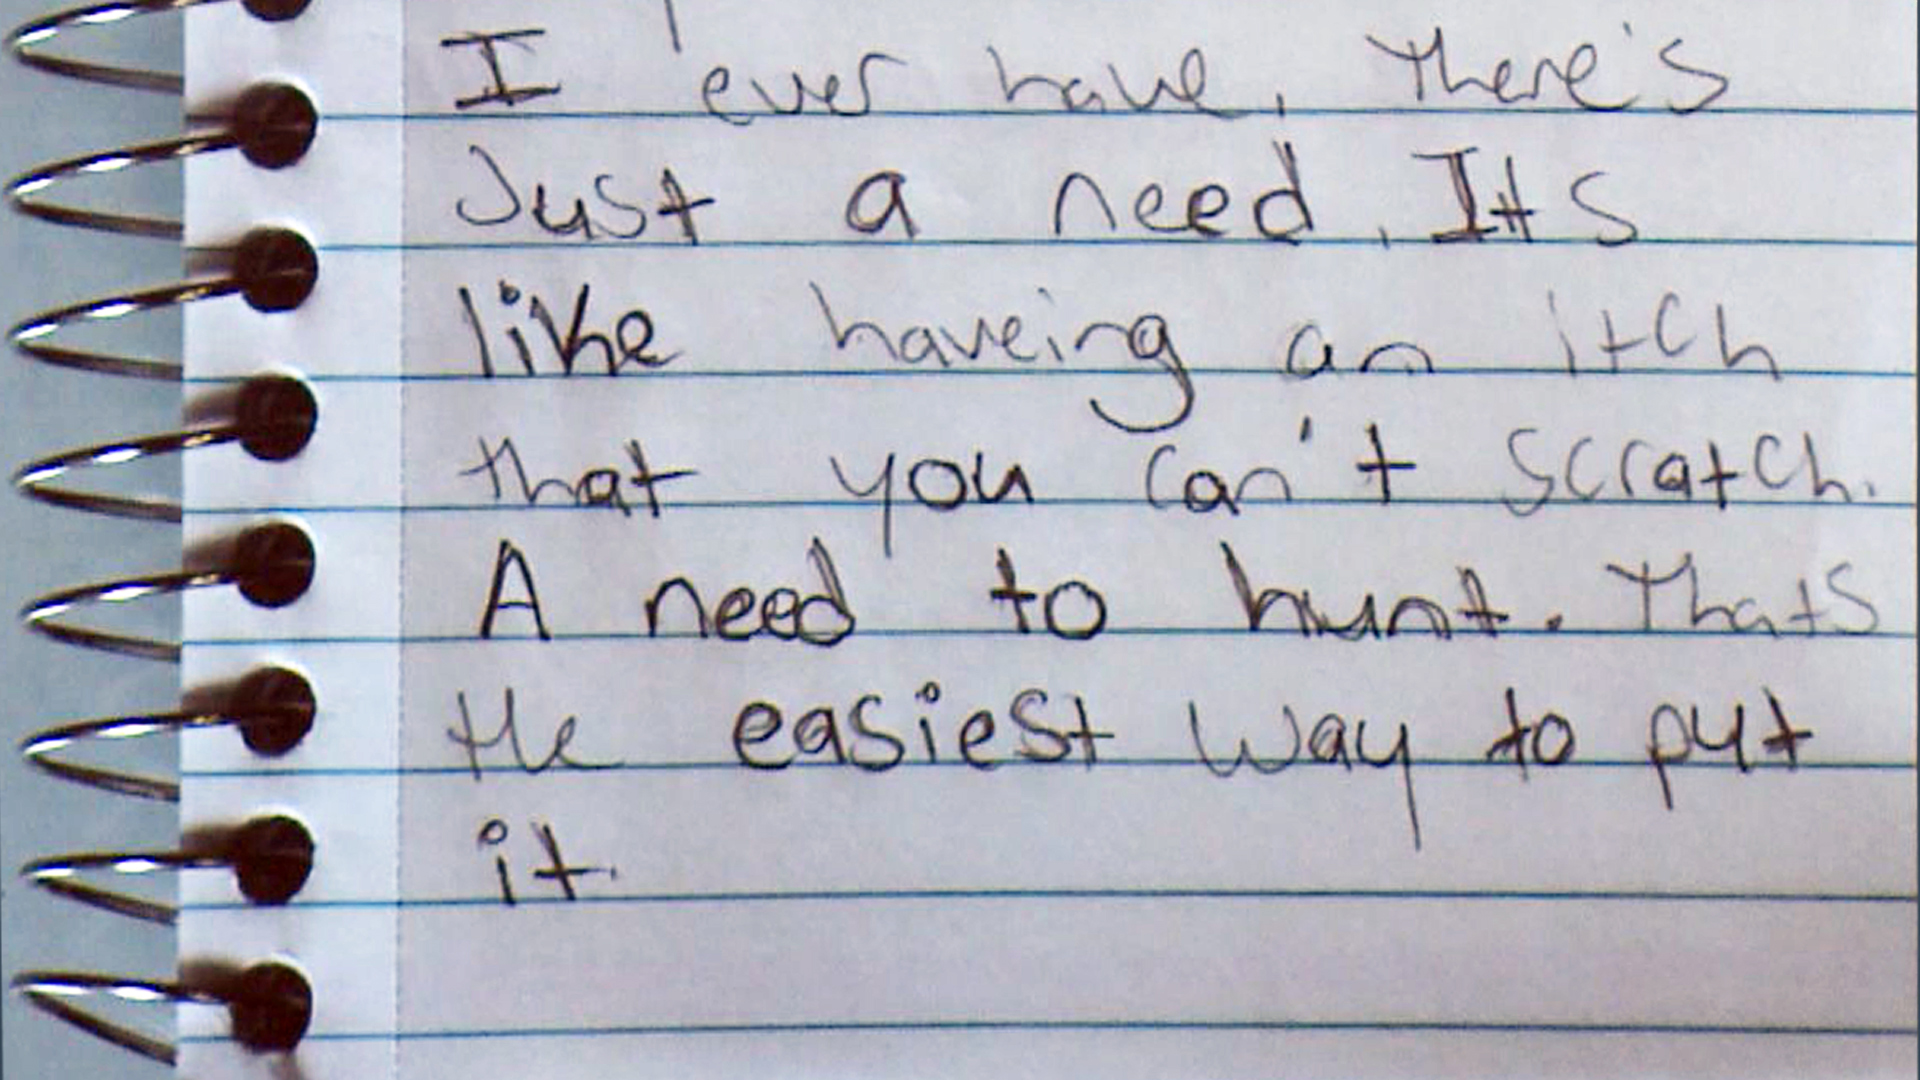 I ever have. There's
Just a need. Its
like haveing an itch
that you can't scratch.
A need to hunt. Thats
the easiest way to put
it.